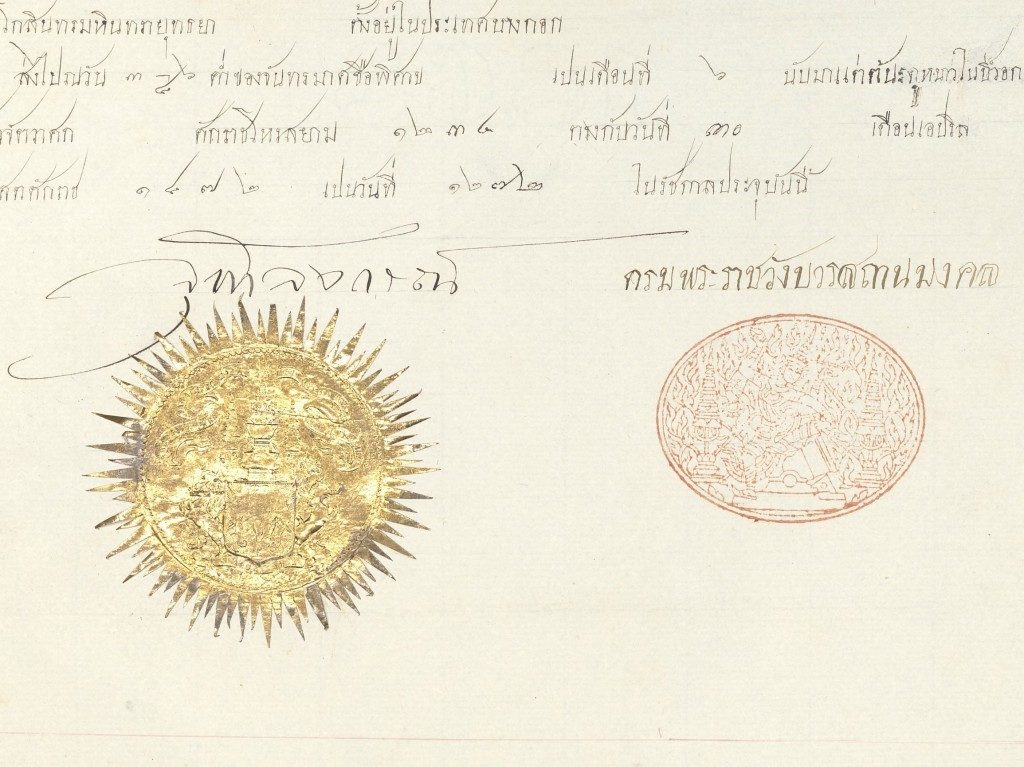 โกสินทรมหินทรายุทธยา ตั้งอยู่ในประเทศบางกอก
ส่งไปณวัน ๓ ค่ำของจันทรมาศชื่อพิศาข เปนเดือนที่ ๖ นับมาแต่ต้นระดูหนาวในปีวอก
จัตวาศก ศักราชโหรสยาม ๑๒๓๔ ตรงกับวันที่ ๓๐ เดือนเอปริล
ศักราช ๑๘๗๒ เปนวันที่ ๑๒๗๒ ในรัชกาลประจุบันนี้
จุฬาลงกรณ์ กรมพระราชวังบวรสถานมงคล